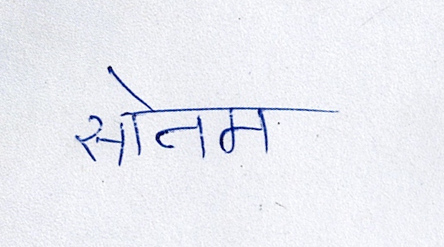 सोनम